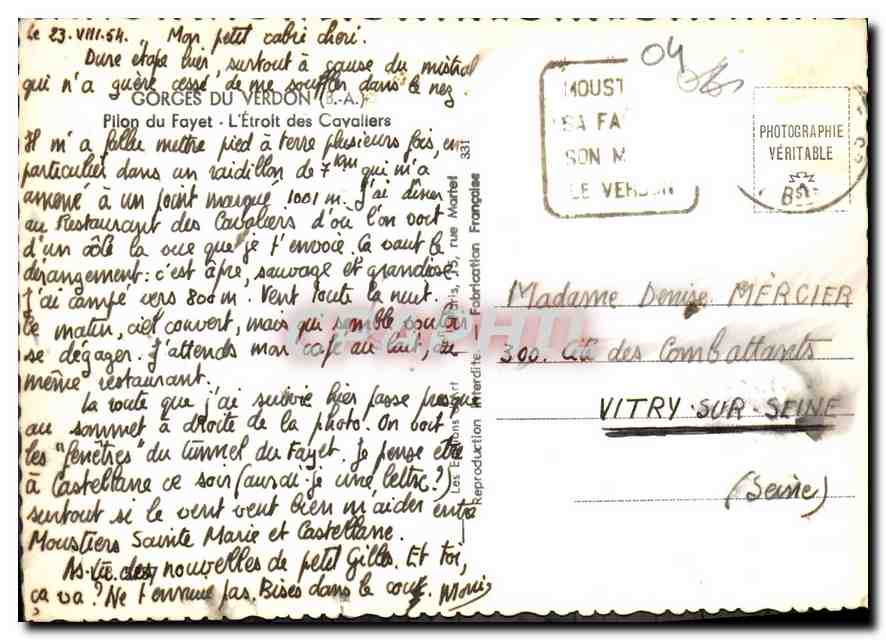 Le 23.VIII.54. Mon petit cabri chéri.
Dure étape hier, surtout à cause du mistral
qui n'a guère cessé de me souffler dans le nez.
GORGES DU VERDON (B.-A.)
Pilon du Fayet - L'Étroit des Cavaliers
Il m'a fallu mettre pied à terre plusieurs fois, en
particulier dans un raidillon de 7 km qui m'a
amené à un point marqué 1001 m. J'ai dîner
au Restaurant des Cavaliers d'où l'on voit
d'un côté la vue que je t'envoie. Ça vaut le
dérangement : c'est âpre, sauvage et grandiose.
J'ai campé vers 800 m. Vent toute la nuit.
Ce matin, ciel couvert, mais qui semble vouloir
se dégager. J'attends mon café au lait, au
même restaurant.
La route que j'ai suivie hier passe presque
au sommet à droite de la photo. On voit
les "fenêtres" du tunnel du Fayet. Je pense être
à Castellane ce soir (aurai-je une lettre ?)
surtout si le vent veut bien m'aider entre
Moustiers Sainte Marie et Castellane.
As-tu des nouvelles de petit Gilles. Et toi,
ça va ? Ne t'ennuie pas. Bises dans le cou.
331
Les Editions d'Art Paris, 15, rue Martel
Reproduction interdite. Fabrication Française
04
MOUST
SA FA
SON M
LE VERDON
PHOTOGRAPHIE
VÉRITABLE
Madame Denise MERCIER
300. Cité des Combattants
VITRY-SUR-SEINE
(Seine)